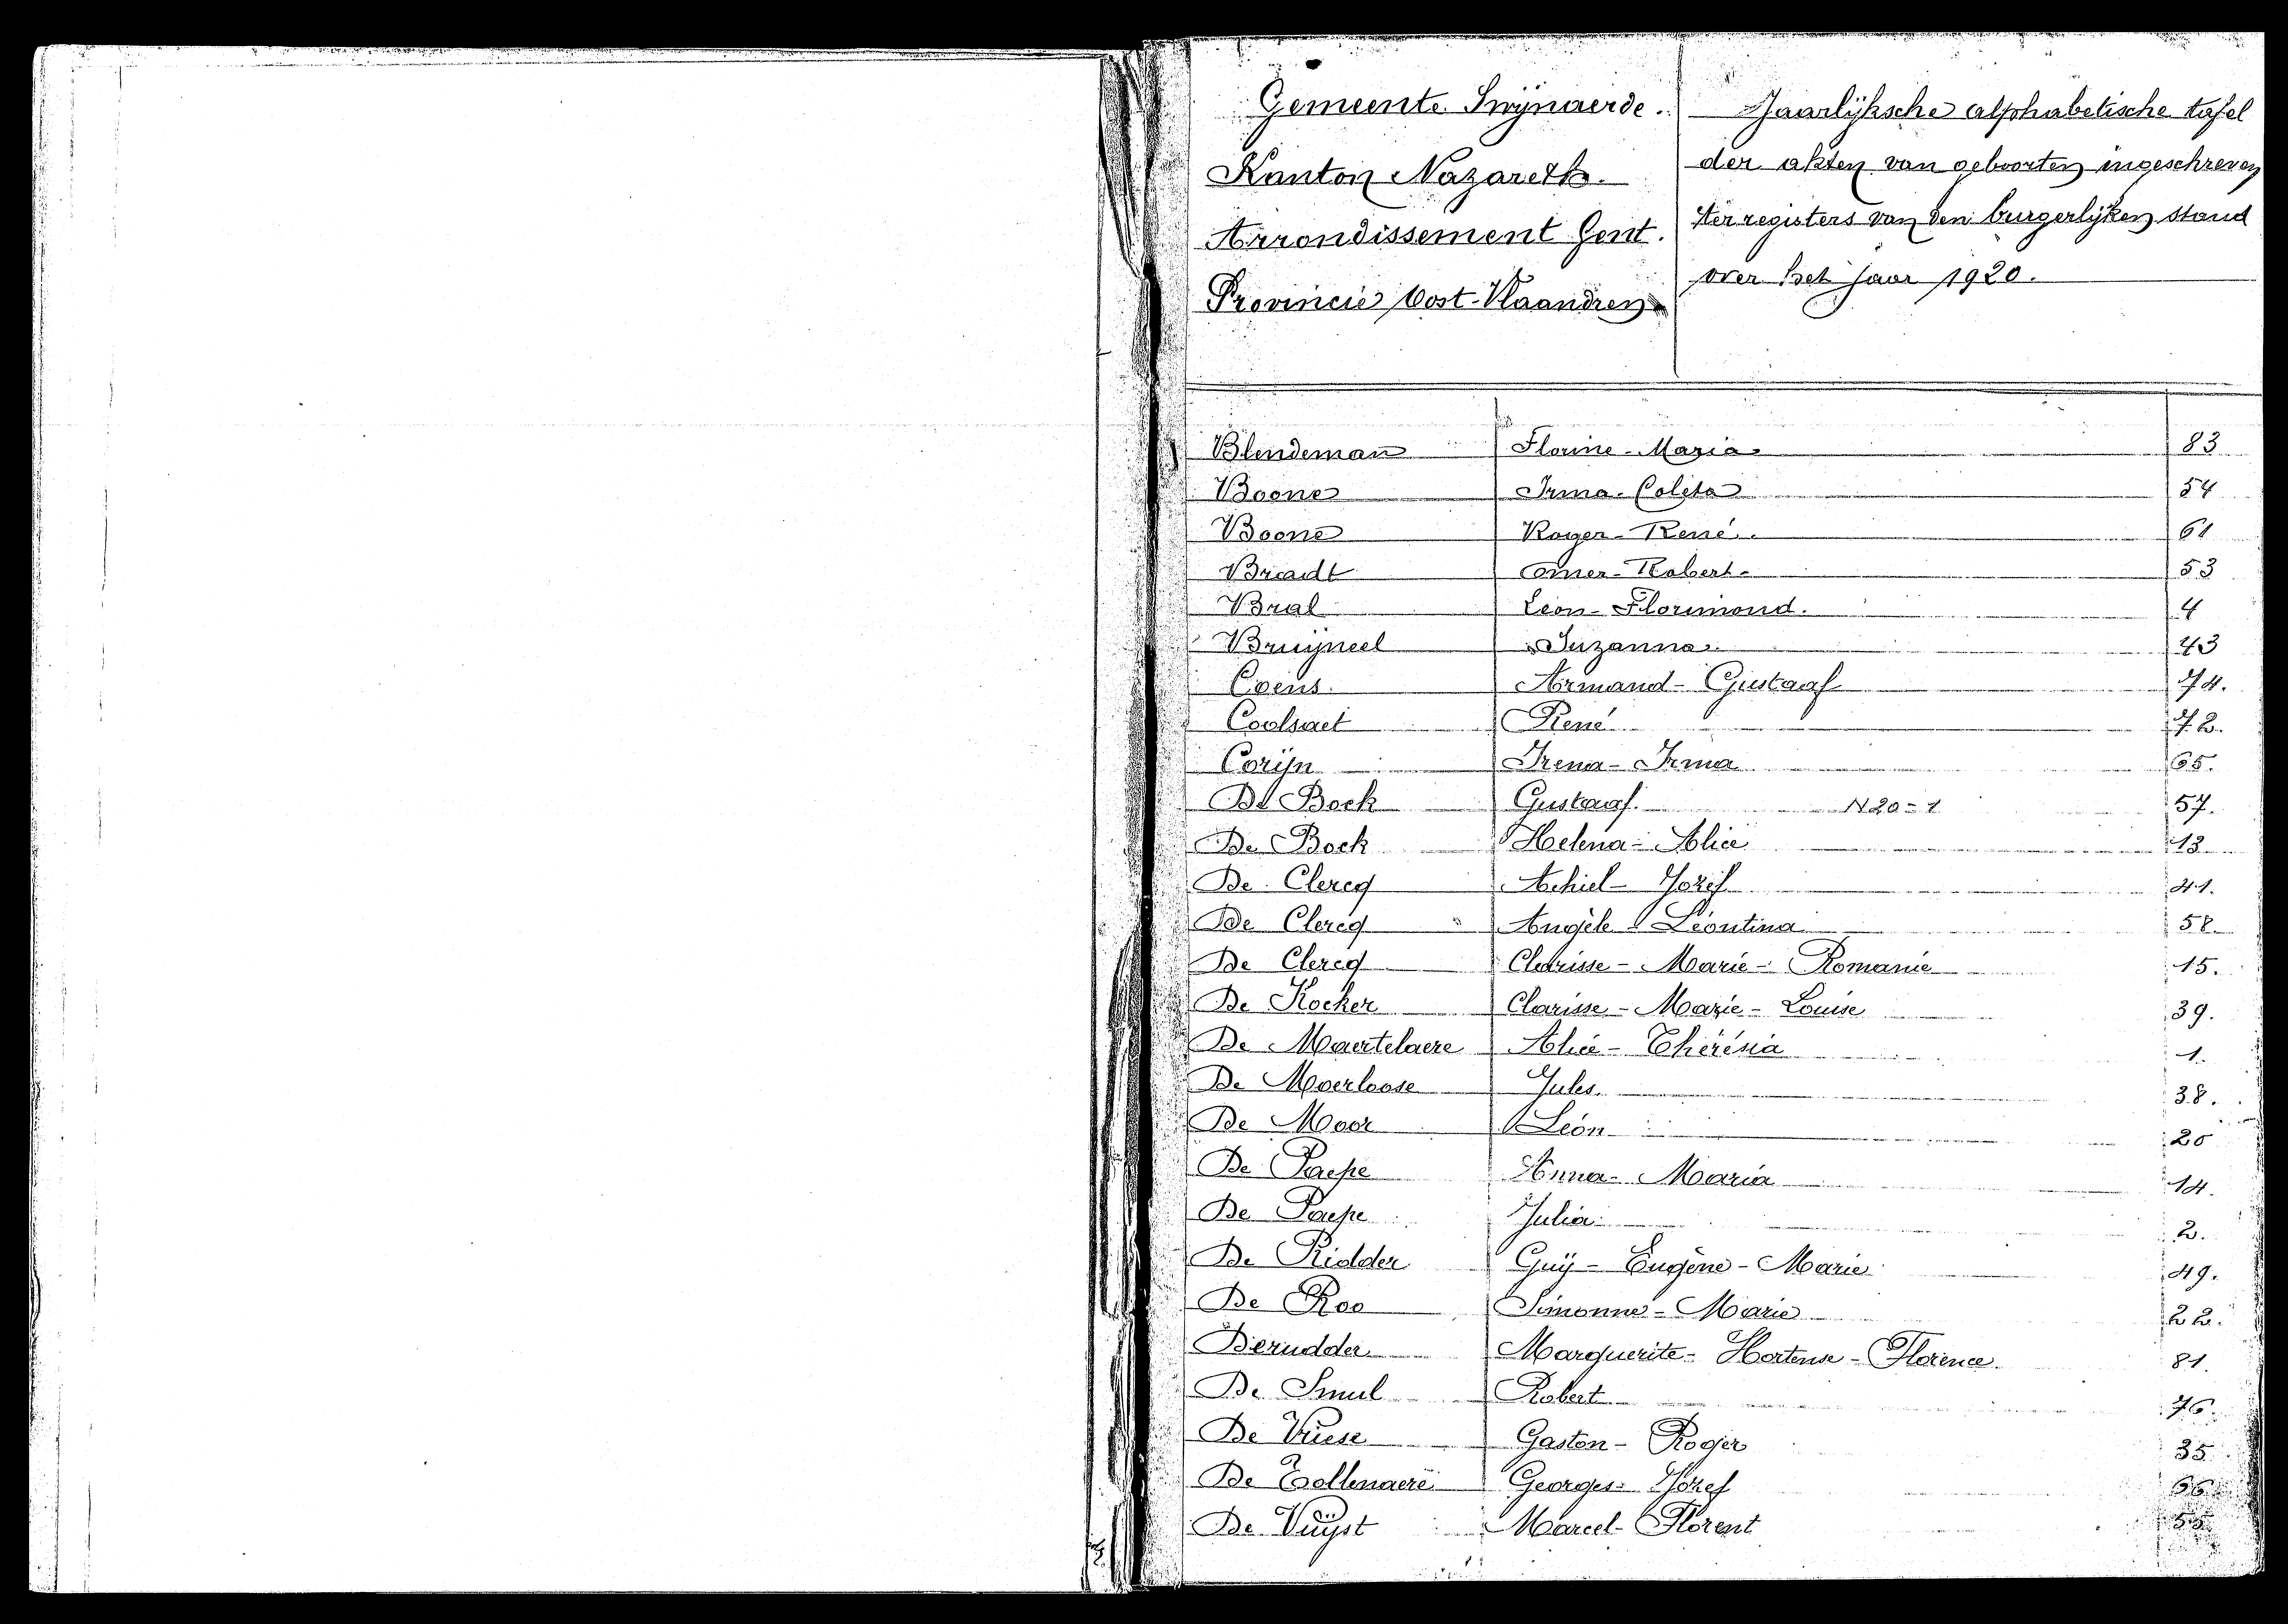 Gemeente Swynaerde.
Kanton Nazareth.
Arrondissement Gent.
Provincie Oost-Vlaandren
Jaarlijksche alphabetische tafel
der akten van geboorten ingeschreven
ter registers van den burgerlijken stand
over het jaar 1920.
Blendeman Florine-Maria 83
Boone Irma-Coleta 54
Boone Roger-René 61
Bracdt Omer-Robert 53
Bral Leon-Florimond. 4
Bruijneel Suzanna 43
Coens Armand-Gustaaf 74.
Coolsaet René 72.
Corijn Irena-Irma 65.
De Bock Gustaaf. N20-1 57.
De Bock Helena-Alice 13
De Clercq Achiel-Jozef 41.
De Clercq Angèle Léontina 58
De Clercq Clarisse-Marie-Romanie 15.
De Kocker Clarisse-Marie-Louise 39.
De Maertelaere Alice-Thérésia 1.
De Moerloose Jules 38.
De Moor Léon 20
De Paepe Anna-Maria 14.
De Paepe Julia 2.
De Ridder Guÿ-Eugène-Marie 49.
De Roo Simonne-Marie 22.
Derudder Marguerite-Hortense-Florence 81.
De Smul Robert 76.
De Vriese Gaston-Roger 35
De Tollenaere Georges-Jozef 66
De Vuÿst Marcel-Florent